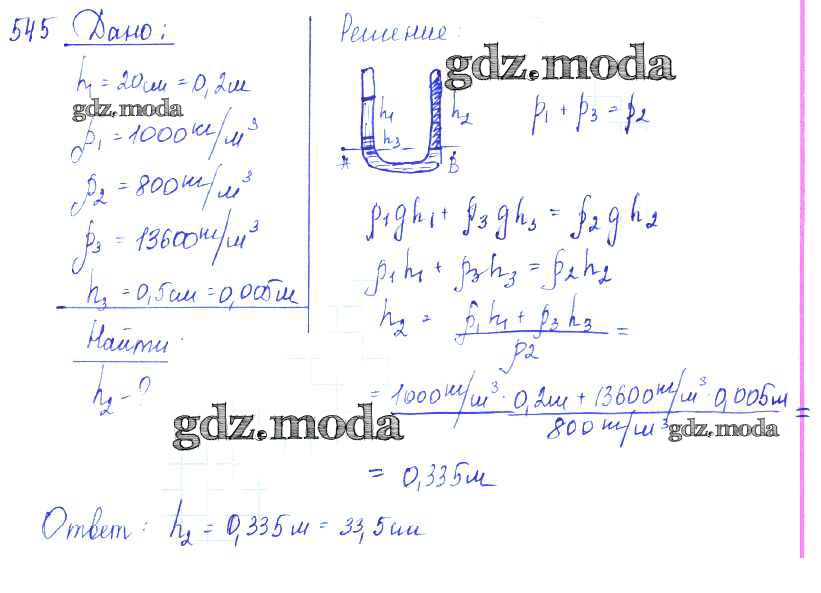 545 Дано:
h₁ = 20см = 0,2м
gdz.moda
ρ₁ = 1000 кг/м³
ρ₂ = 800 кг/м³
ρ₃ = 13600 кг/м³
h₃ = 0,5см = 0,005м
Найти:
h₂ - ?
Решение:
gdz.moda
h₁
h₂
h₃
A
B
p₁ + p₃ = p₂
ρ₁gh₁ + ρ₃gh₃ = ρ₂gh₂
ρ₁h₁ + ρ₃h₃ = ρ₂h₂
h₂ = (ρ₁h₁ + ρ₃h₃)/ρ₂ =
= (1000 кг/м³ · 0,2м + 13600 кг/м³ · 0,005м)/(800 кг/м³) =
gdz.moda
gdz.moda
= 0,335м
Ответ: h₂ = 0,335м = 33,5см